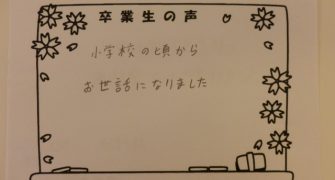 卒業生の声
小学校の頃から
お世話になりました